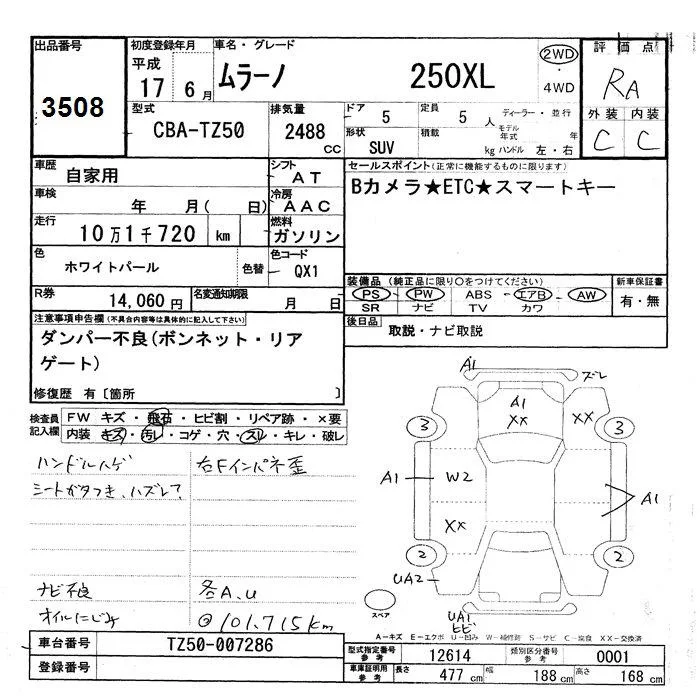 出品番号
3508
初度登録年月
平成
17年 6月
車名・グレード
ムラーノ 250XL
2WD
・
4WD
評価点
RA
外装 内装
C C
型式
CBA-TZ50
排気量
2488 cc
ドア
5
定員
5人
ディーラー・並行
形状
SUV
積載
kg
モデル年式 年
ハンドル 左・右
車歴
自家用
シフト
AT
車検
年 月( 日)
冷房
AAC
走行
10万1千720 km
燃料
ガソリン
色
ホワイトパール
色替
色コード
QX1
R券
14,060円
名変通知期限
月 日
セールスポイント(正常に機能するものに限ります)
Bカメラ★ETC★スマートキー
装備品 (純正品に限り○をつけてください)
PS・PW ABS・エアB・AW
SR ナビ TV カワ
新車保証書
有・無
後日品
取説・ナビ取説
注意事項申告欄(不具合内容等は具体的に記入して下さい)
ダンパー不良(ボンネット・リア
ゲート)
修復歴 有〔箇所 〕
検査員
記入欄
FW キズ・飛石・ヒビ割・リペア跡・×要
内装 キズ・汚レ・コゲ・穴・スレ・キレ・破レ
ハンドルハゲ
右Fインパネ歪
シートガタつき、ハズレて
ナビ不良
各A、U
オイルにじみ
◎101,715km
A1
ズレ
A1
XX
XX
3
3
A1
W2
A1
XX
2
2
UA2
UA1
ヒビ
スペア
A-キズ E-エクボ U-凹み W-補修跡 S-サビ C-腐食 XX-交換済
車台番号
TZ50-007286
登録番号
型式指定番号
参考
12614
類別区分番号
参考
0001
車庫証明用
参考
長さ 477 cm
幅 188 cm
高さ 168 cm